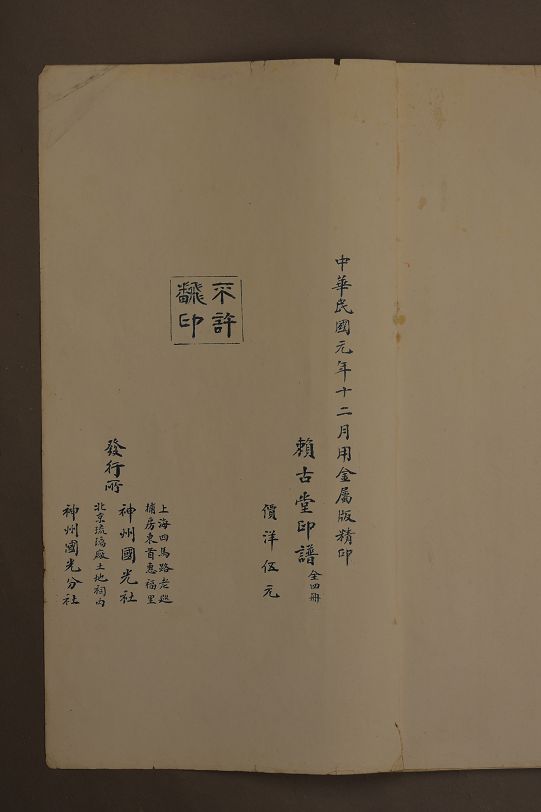 中華民國元年十二月用金屬版精印
賴古堂印譜 全四冊
價洋伍元
不許
翻印
發行所
上海四馬路老巡
捕房東首惠福里
神州國光社
北京琉璃廠土地祠內
神州國光分社